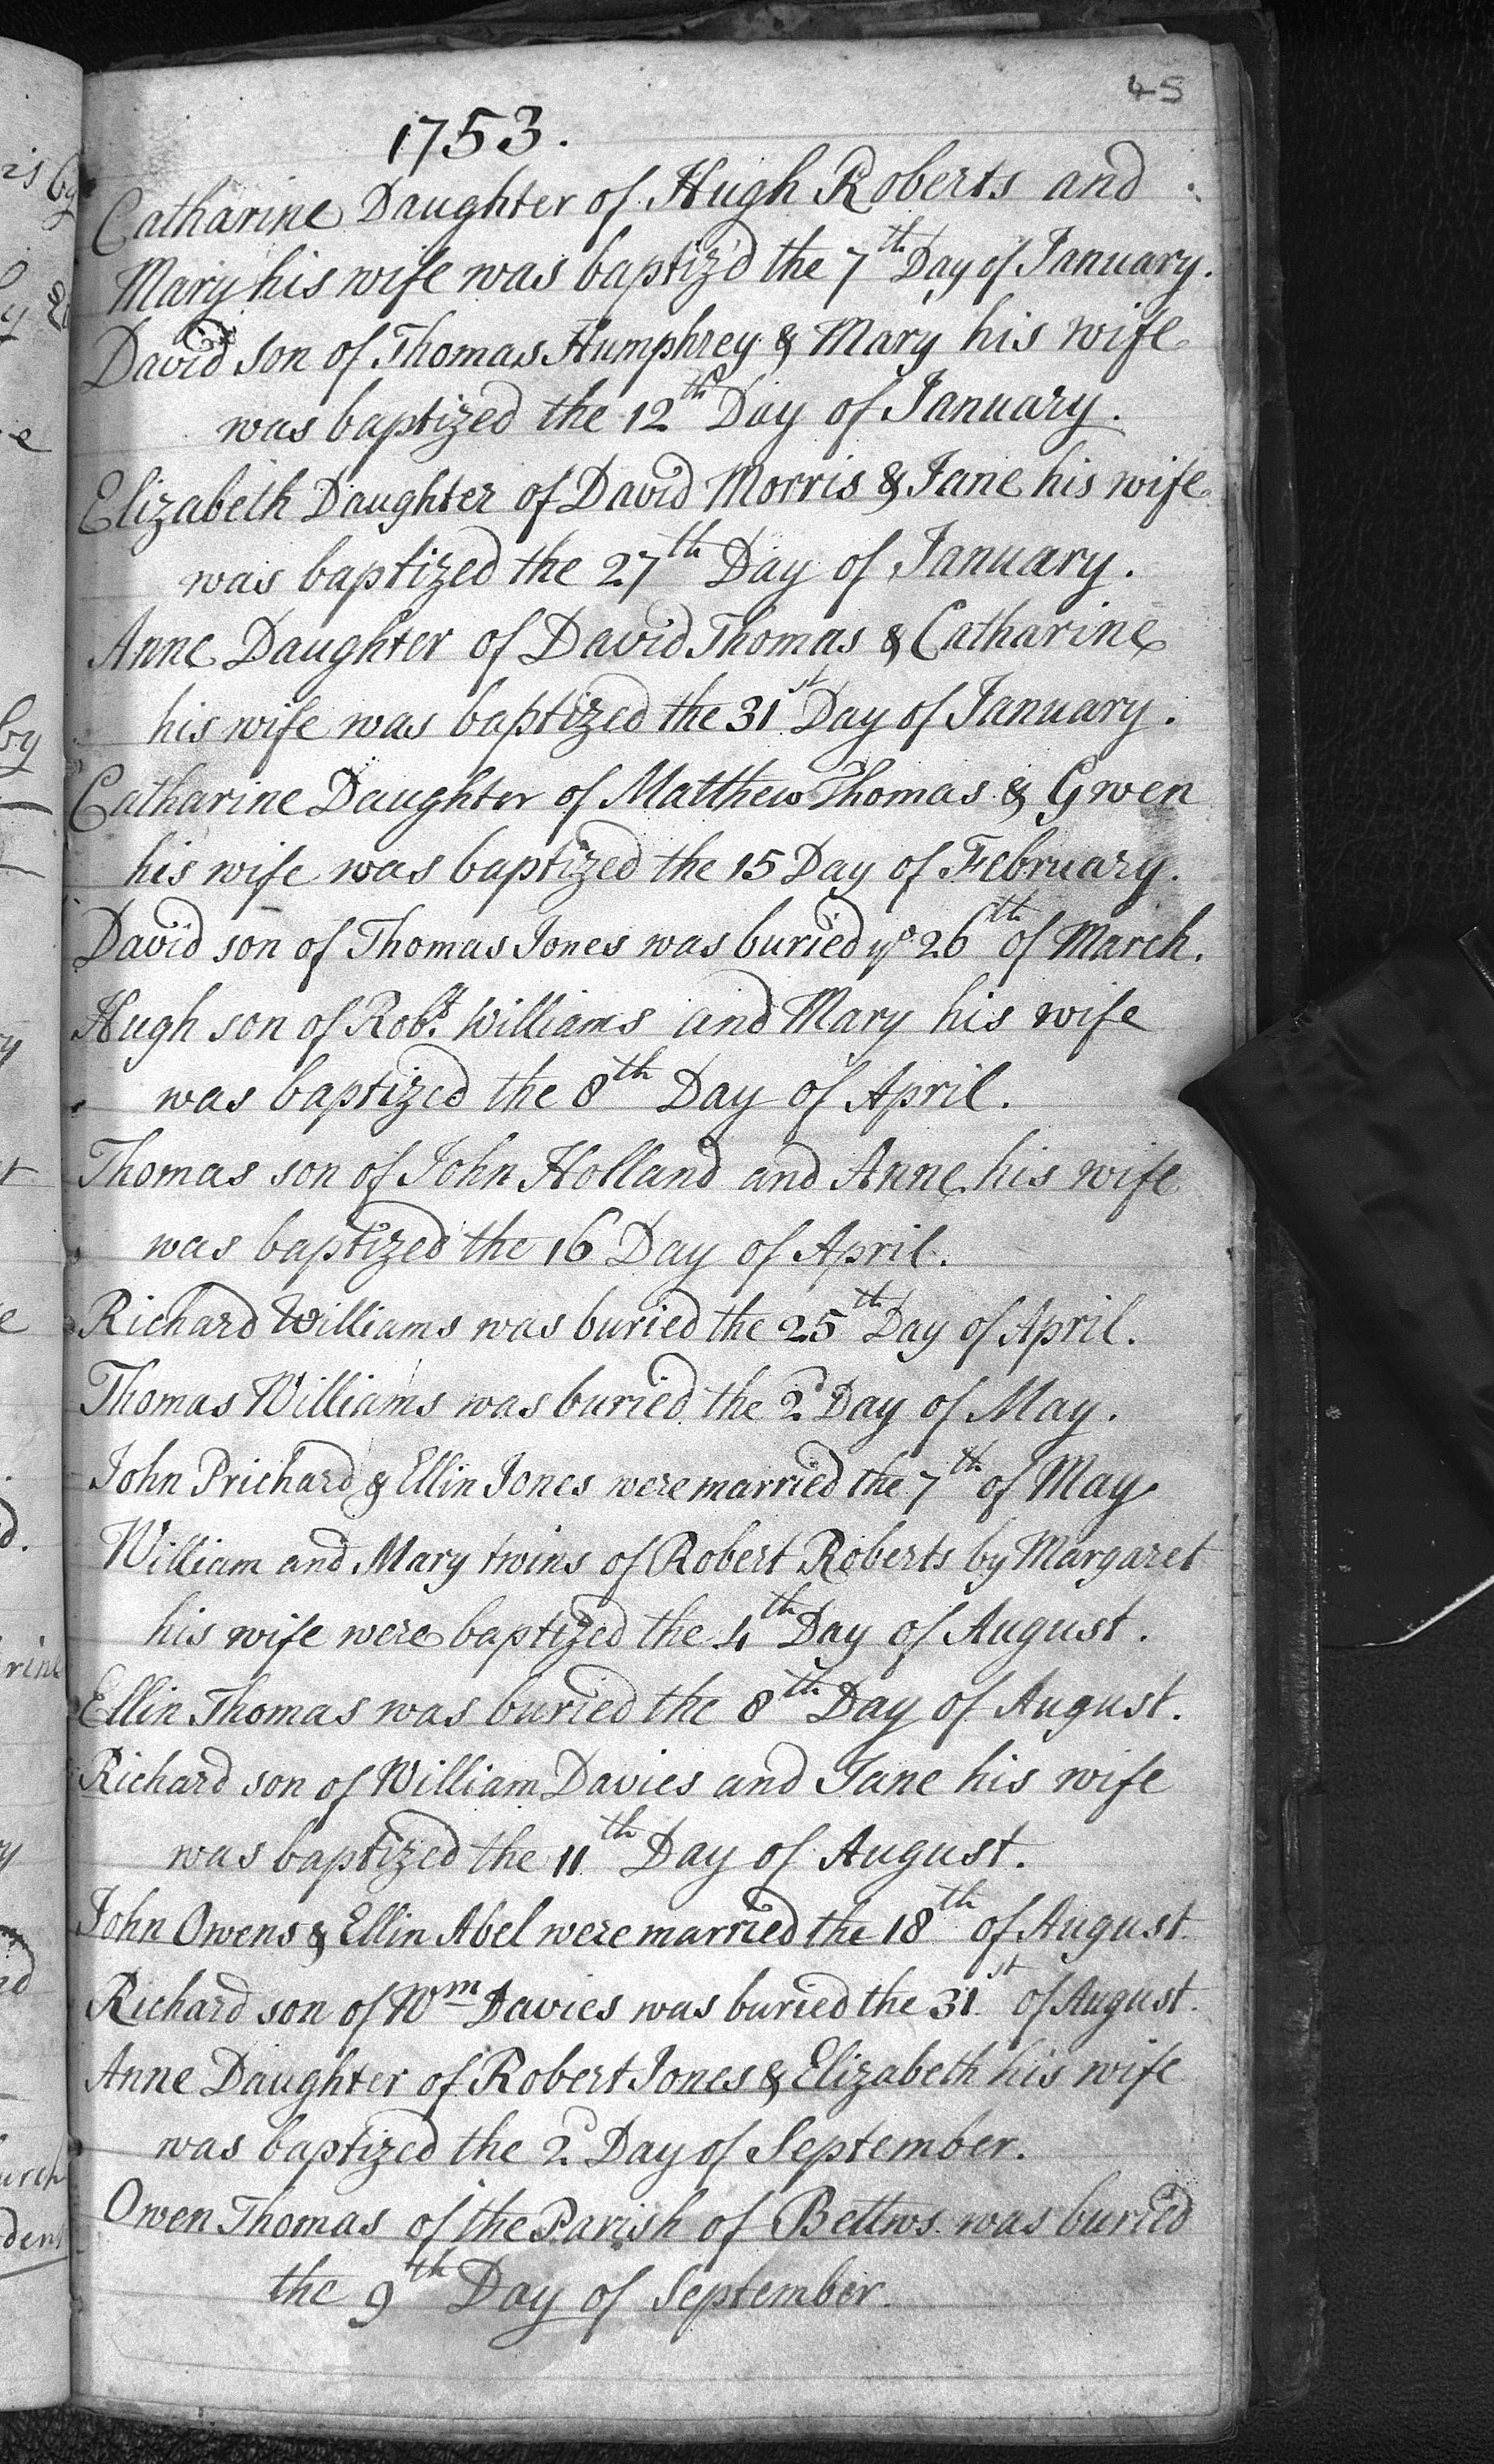 45
1753.
Catharine Daughter of Hugh Roberts and
Mary his wife was baptiz'd the 7th Day of January.
David son of Thomas Humphrey & Mary his wife
was baptized the 12th Day of January.
Elizabeth Daughter of David Morris & Jane his wife
was baptized the 27th Day of January.
Anne Daughter of David Thomas & Catharine
his wife was baptized the 31st Day of January.
Catharine Daughter of Matthew Thomas & Gwen
his wife was baptized the 15 Day of February.
David son of Thomas Jones was buried ye 26th of March.
Hugh son of Robt. Williams and Mary his wife
was baptized the 8th Day of April.
Thomas son of John Holland and Anne his wife
was baptized the 16 Day of April.
Richard Williams was buried the 25th Day of April.
Thomas Williams was buried the 2d Day of May.
John Prichard & Ellin Jones were married the 7th of May
William and Mary twins of Robert Roberts by Margaret
his wife were baptized the 4th Day of August.
Ellin Thomas was buried the 8th Day of August.
Richard son of William Davies and Jane his wife
was baptized the 11th Day of August.
John Owens & Ellin Abel were married the 18th of August.
Richard son of Wm Davies was buried the 31st of August.
Anne Daughter of Robert Jones & Elizabeth his wife
was baptized the 2d Day of September.
Owen Thomas of the Parish of Bettws was buried
the 9th Day of September.